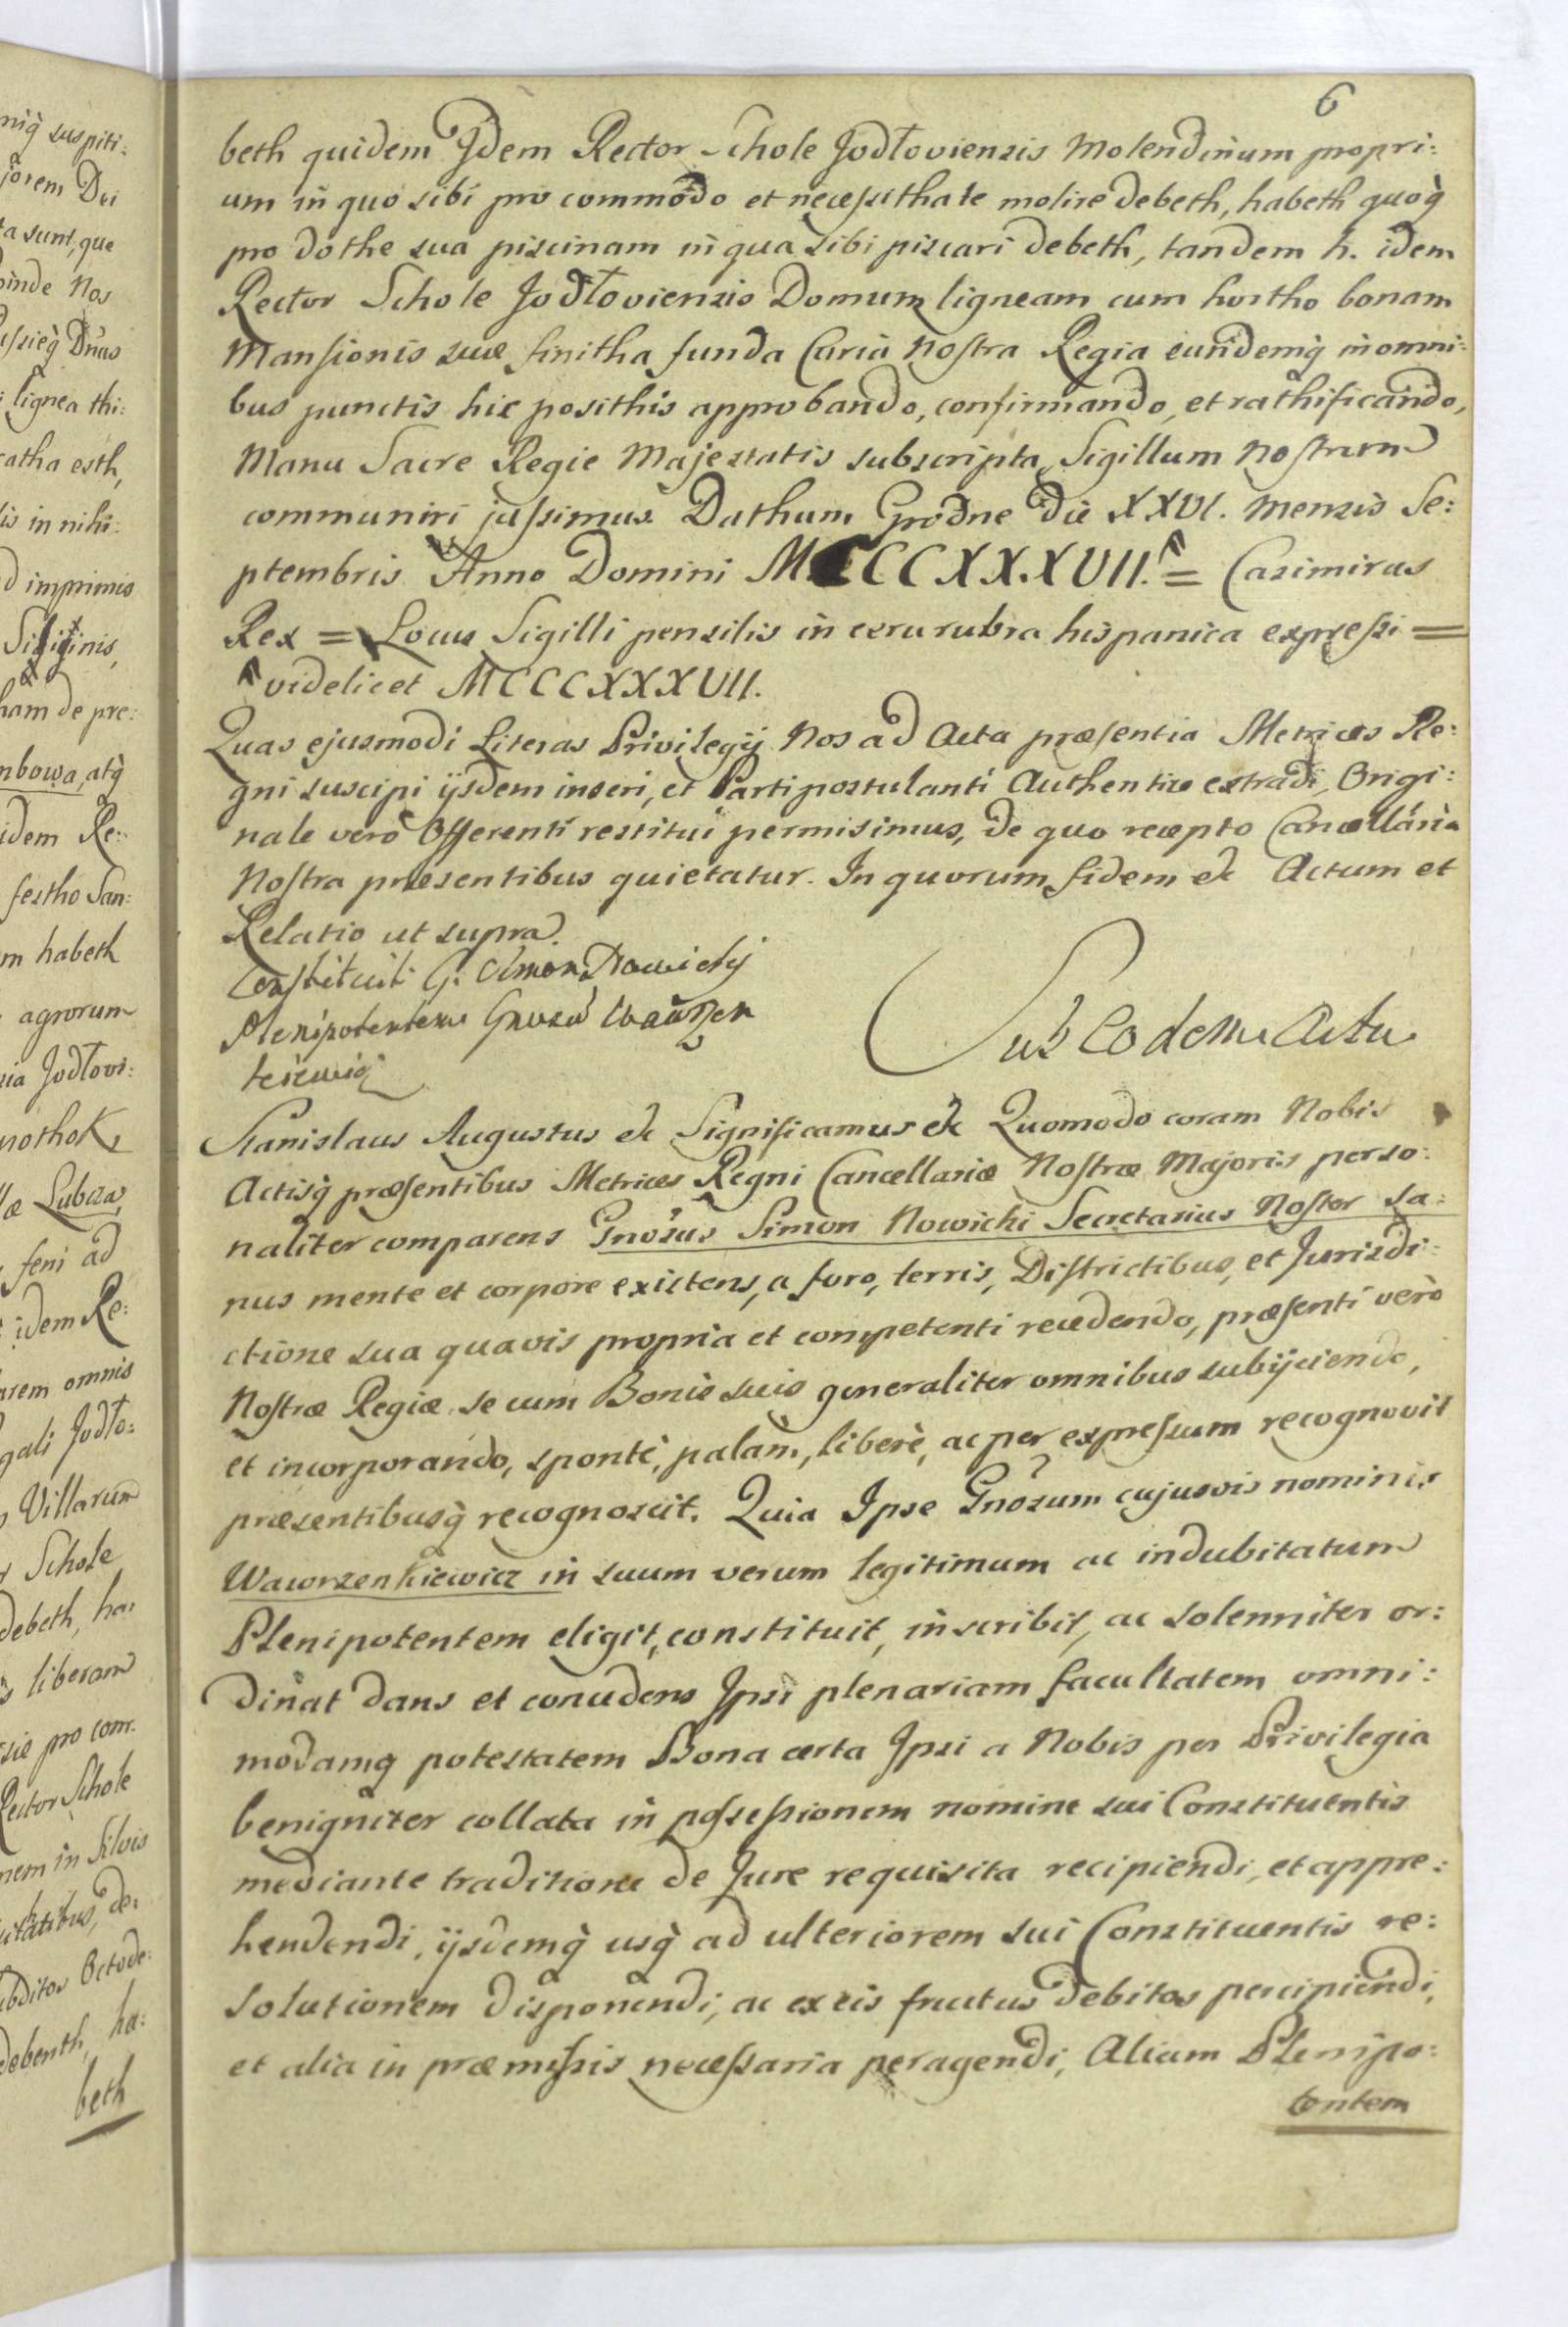 6
beth quidem Jdem Rector Schole Jodłoviensis Molendinum propri:
um in quo sibi pro commodo et necessithate molire debeth, habeth quoq̃
pro dothe sua piscinam in qua sibi piscari debeth, tandem h. idem
Rector Schole Jodłoviensis Domum ligneam cum hortho bonam
Mansionis suæ finitha funda Curia Nostra Regia eundemq̃ in omni:
bus punctis hic posithis approbando, confirmando, et rathificando,
Manu Sacre Regie Majestatis subscripta, Sigillum Nostrum
communiri jussimus. Dathum Grodne die XXVI. Mensis Se:
ptembris Anno Domini MCCCXXXVII. = Casimirus
Rex = Locus Sigilli pensilis in cera rubra hispanica expressi =
videlicet MCCCXXXVII.
Quas ejusmodi Literas Privilegij Nos ad Acta præsentia Metrices Re:
gni suscipi ijsdem inseri, et Parti postulanti Authentice extradi, Origi:
nale verò Offerenti restitui permisimus, de quo recepto Cancellaria
Nostra præsentibus quietatur. In quorum fidem &c Actum et
Relatio ut supra.
Constituit G. Simon Nowicky
Plenipotentem Gnosū Wawrzen
kiewicz
Sub Eodem Actu
Stanislaus Augustus &c Significamus &c Quomodo coram Nobis
Actisq̃ præsentibus Metrices Regni Cancellariæ Nostræ Majoris perso:
naliter comparens Gnosus Simon Nowicki Secretarius Noster sa:
nus mente et corpore existens, a foro, terris, Districtibus, et Jurisdi:
ctione sua quavis propria et competenti recedendo, præsenti verò
Nostræ Regiæ se cum Bonis suis generaliter omnibus subijciendo,
et incorporando, spontè, palam, liberè, ac per expressum recognovit
præsentibusq̃ recognoscit. Quia Ipse Gnosum cujusvis nominis
Wawrzenkiewicz in suum verum legitimum ac indubitatum
Plenipotentem eligit, constituit, inscribit, ac solenniter or:
dinat dans et concedens Ipsi plenariam facultatem omni:
modamq̃ potestatem Bona certa Ipsi a Nobis per Privilegia
benigniter collata in possessionem nomine sui Constituentis
mediante traditione de Jure requisita recipiendi, et appre:
hendendi, ijsdemq̃ usq̃ ad ulteriorem sui Constituentis re:
solutionem disponendi, ac ex eis fructus debitos percipiendi,
et alia in præmissis necessaria peragendi, Alium Plenipo:
tentem